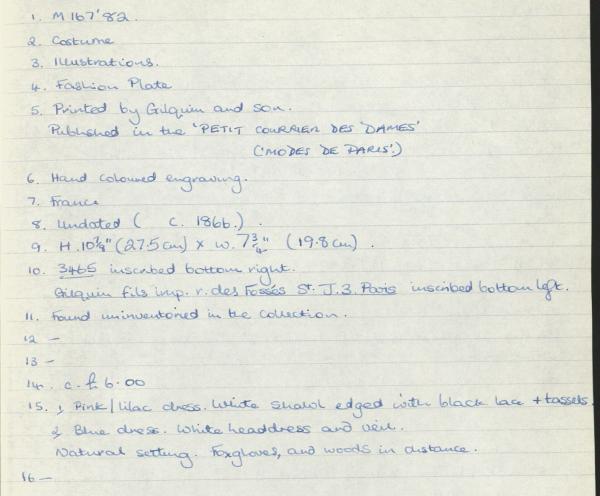 1. M167'82.
2. Costume
3. Illustrations.
4. Fashion Plate
5. Printed by Gilquin and son.
Published in the 'PETIT COURRIER DES DAMES'
('MODES DE PARIS'.)
6. Hand coloured engraving.
7. France
8. Undated ( c. 1866.) .
9. H. 10⅞" (27.5cm) x w. 7¾" (19.8cm) .
10. 3465 inscribed bottom right.
Gilquin fils imp. r. des Fossés St. J. 3. Paris inscribed bottom left.
11. Found uninventoried in the collection.
12 –
13 –
14. c. £6.00
15. 1, Pink/lilac dress. White shawl edged with black lace + tassels.
2, Blue dress. White headdress and veil.
Natural setting. Foxgloves, and woods in distance.
16 –